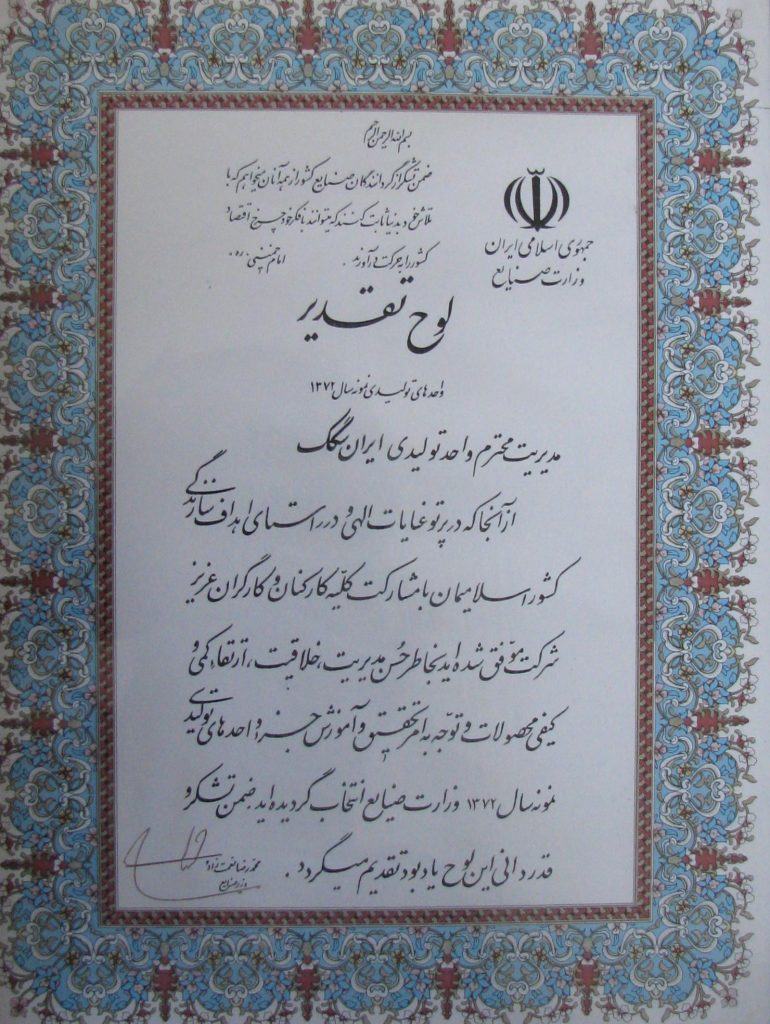 بسم الله الرحمن الرحیم
ضمن تشکر از گردانندگان صنایع کشور از همه آنان میخواهم که با
تلاش خود بدنیا ثابت کنند که میتوانند با فکر خود چرخ اقتصاد
کشور را به حرکت درآورند . امام خمینی «ره»
جمهوری اسلامی ایران
وزارت صنایع
لوح تقدیر
واحدهای تولیدی نمونه سال ۱۳۷۲
مدیریت محترم واحد تولیدی ایران سگک
از آنجا که در پرتو عنایات الهی و در راستای اهداف سازندگی
کشور اسلامیمان با مشارکت کلیّه کارکنان و کارگران عزیز
شرکت موّفق شده اید بخاطر حُسن مدیریت ، خلاقیت ، ارتقاء کمی و
کیفی محصولات و توجّه به امر تحقیق و آموزش جزو واحدهای تولیدی
نمونه سال ۱۳۷۲ وزارت صنایع انتخاب گردیده اید ضمن تشکر و
قدردانی این لوح یادبود تقدیم میگردد .
محمدرضا نعمت زاده
وزیر صنایع